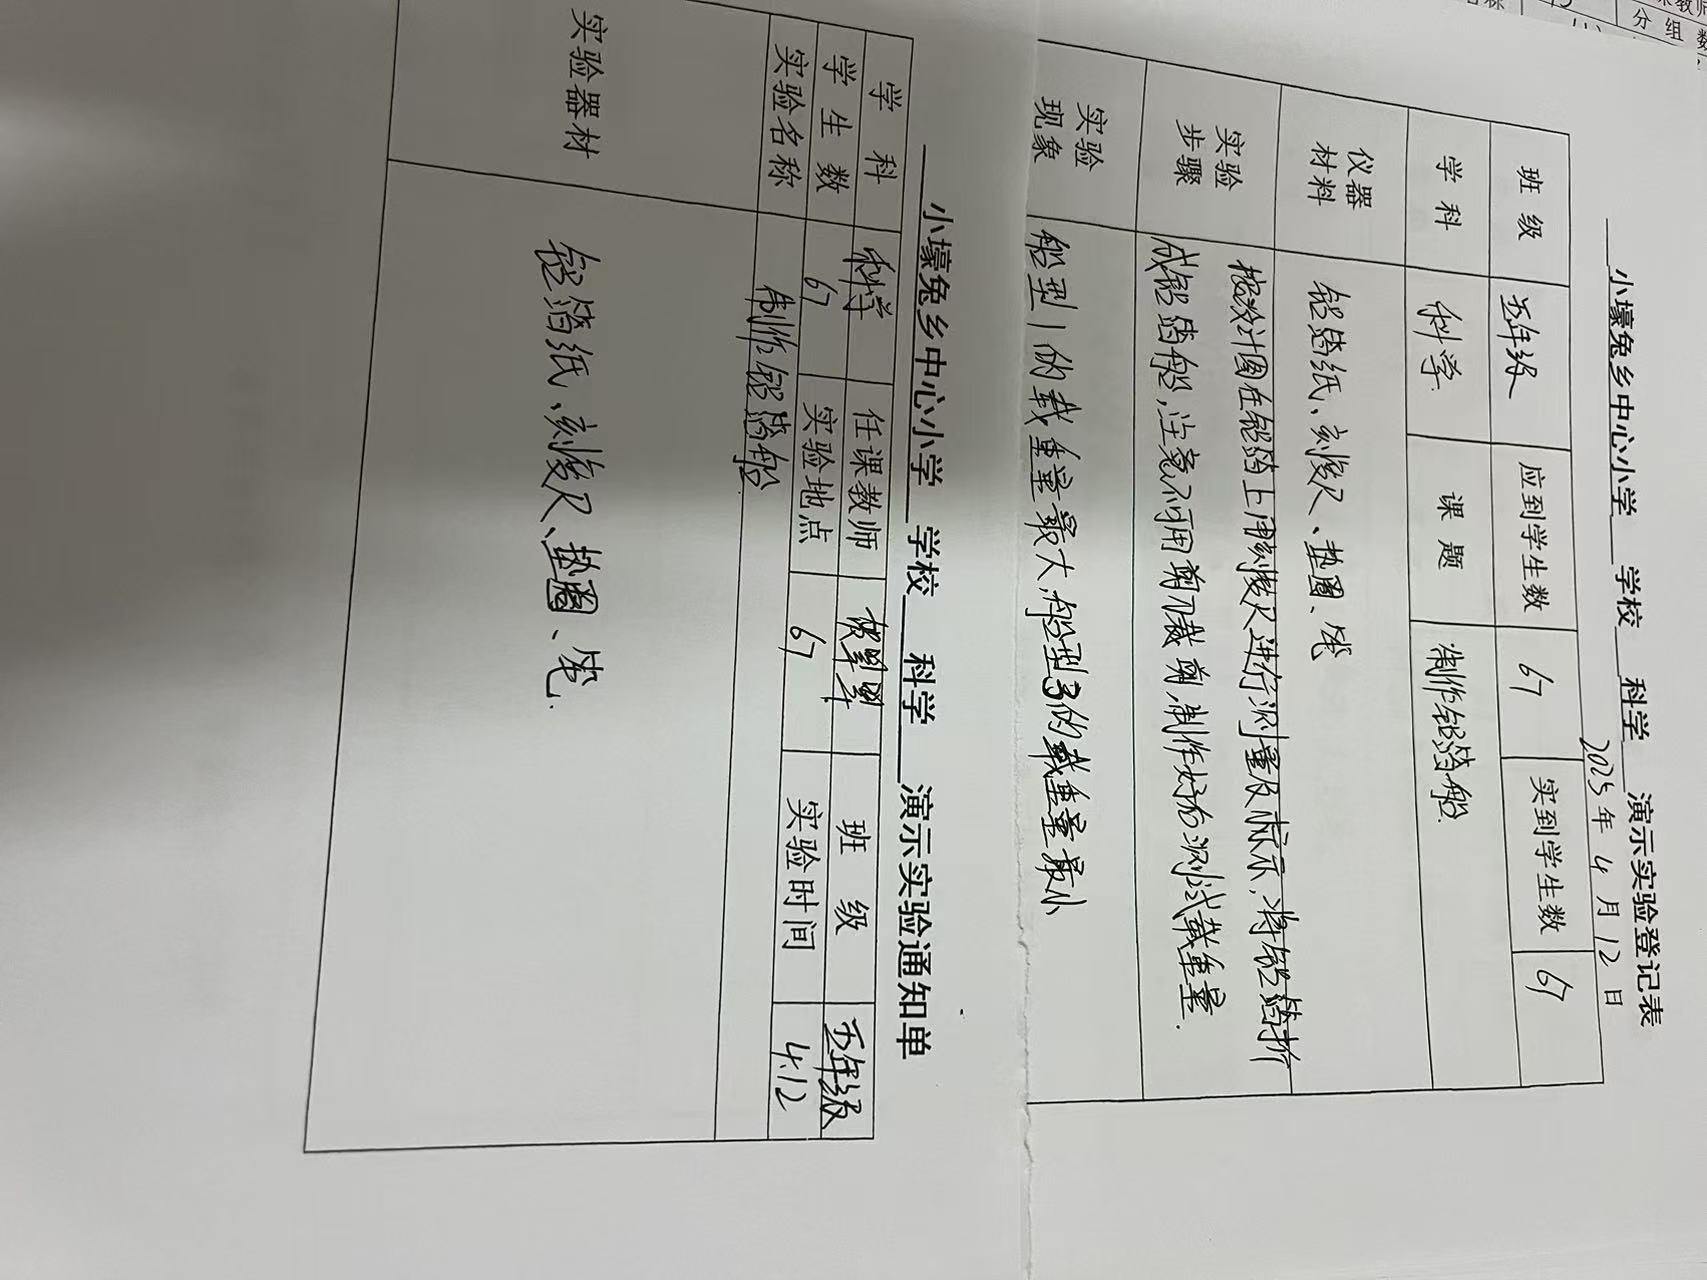 小壕兔乡中心小学 学校 科学 演示实验登记表
2025年4月12日
班级 五年级 应到学生数 67 实到学生数 67
学科 科学 课题 制作铝箔船
仪器材料 铝箔纸、刻度尺、垫圈、笔
实验步骤 按设计图在铝箔上用刻度尺进行测量及标示，将铝箔折
成铝箔船，注意不用剪刀裁剪，制作好后测试载重量.
实验现象 船型1的载重量最大，船型3的载重量最小
小壕兔乡中心小学 学校 科学 演示实验通知单
学科 科学 任课教师 班级 五年级
学生数 67 实验地点 67 实验时间 4.12
实验名称 制作铝箔船
实验器材 铝箔纸、刻度尺、垫圈、笔.
分组数